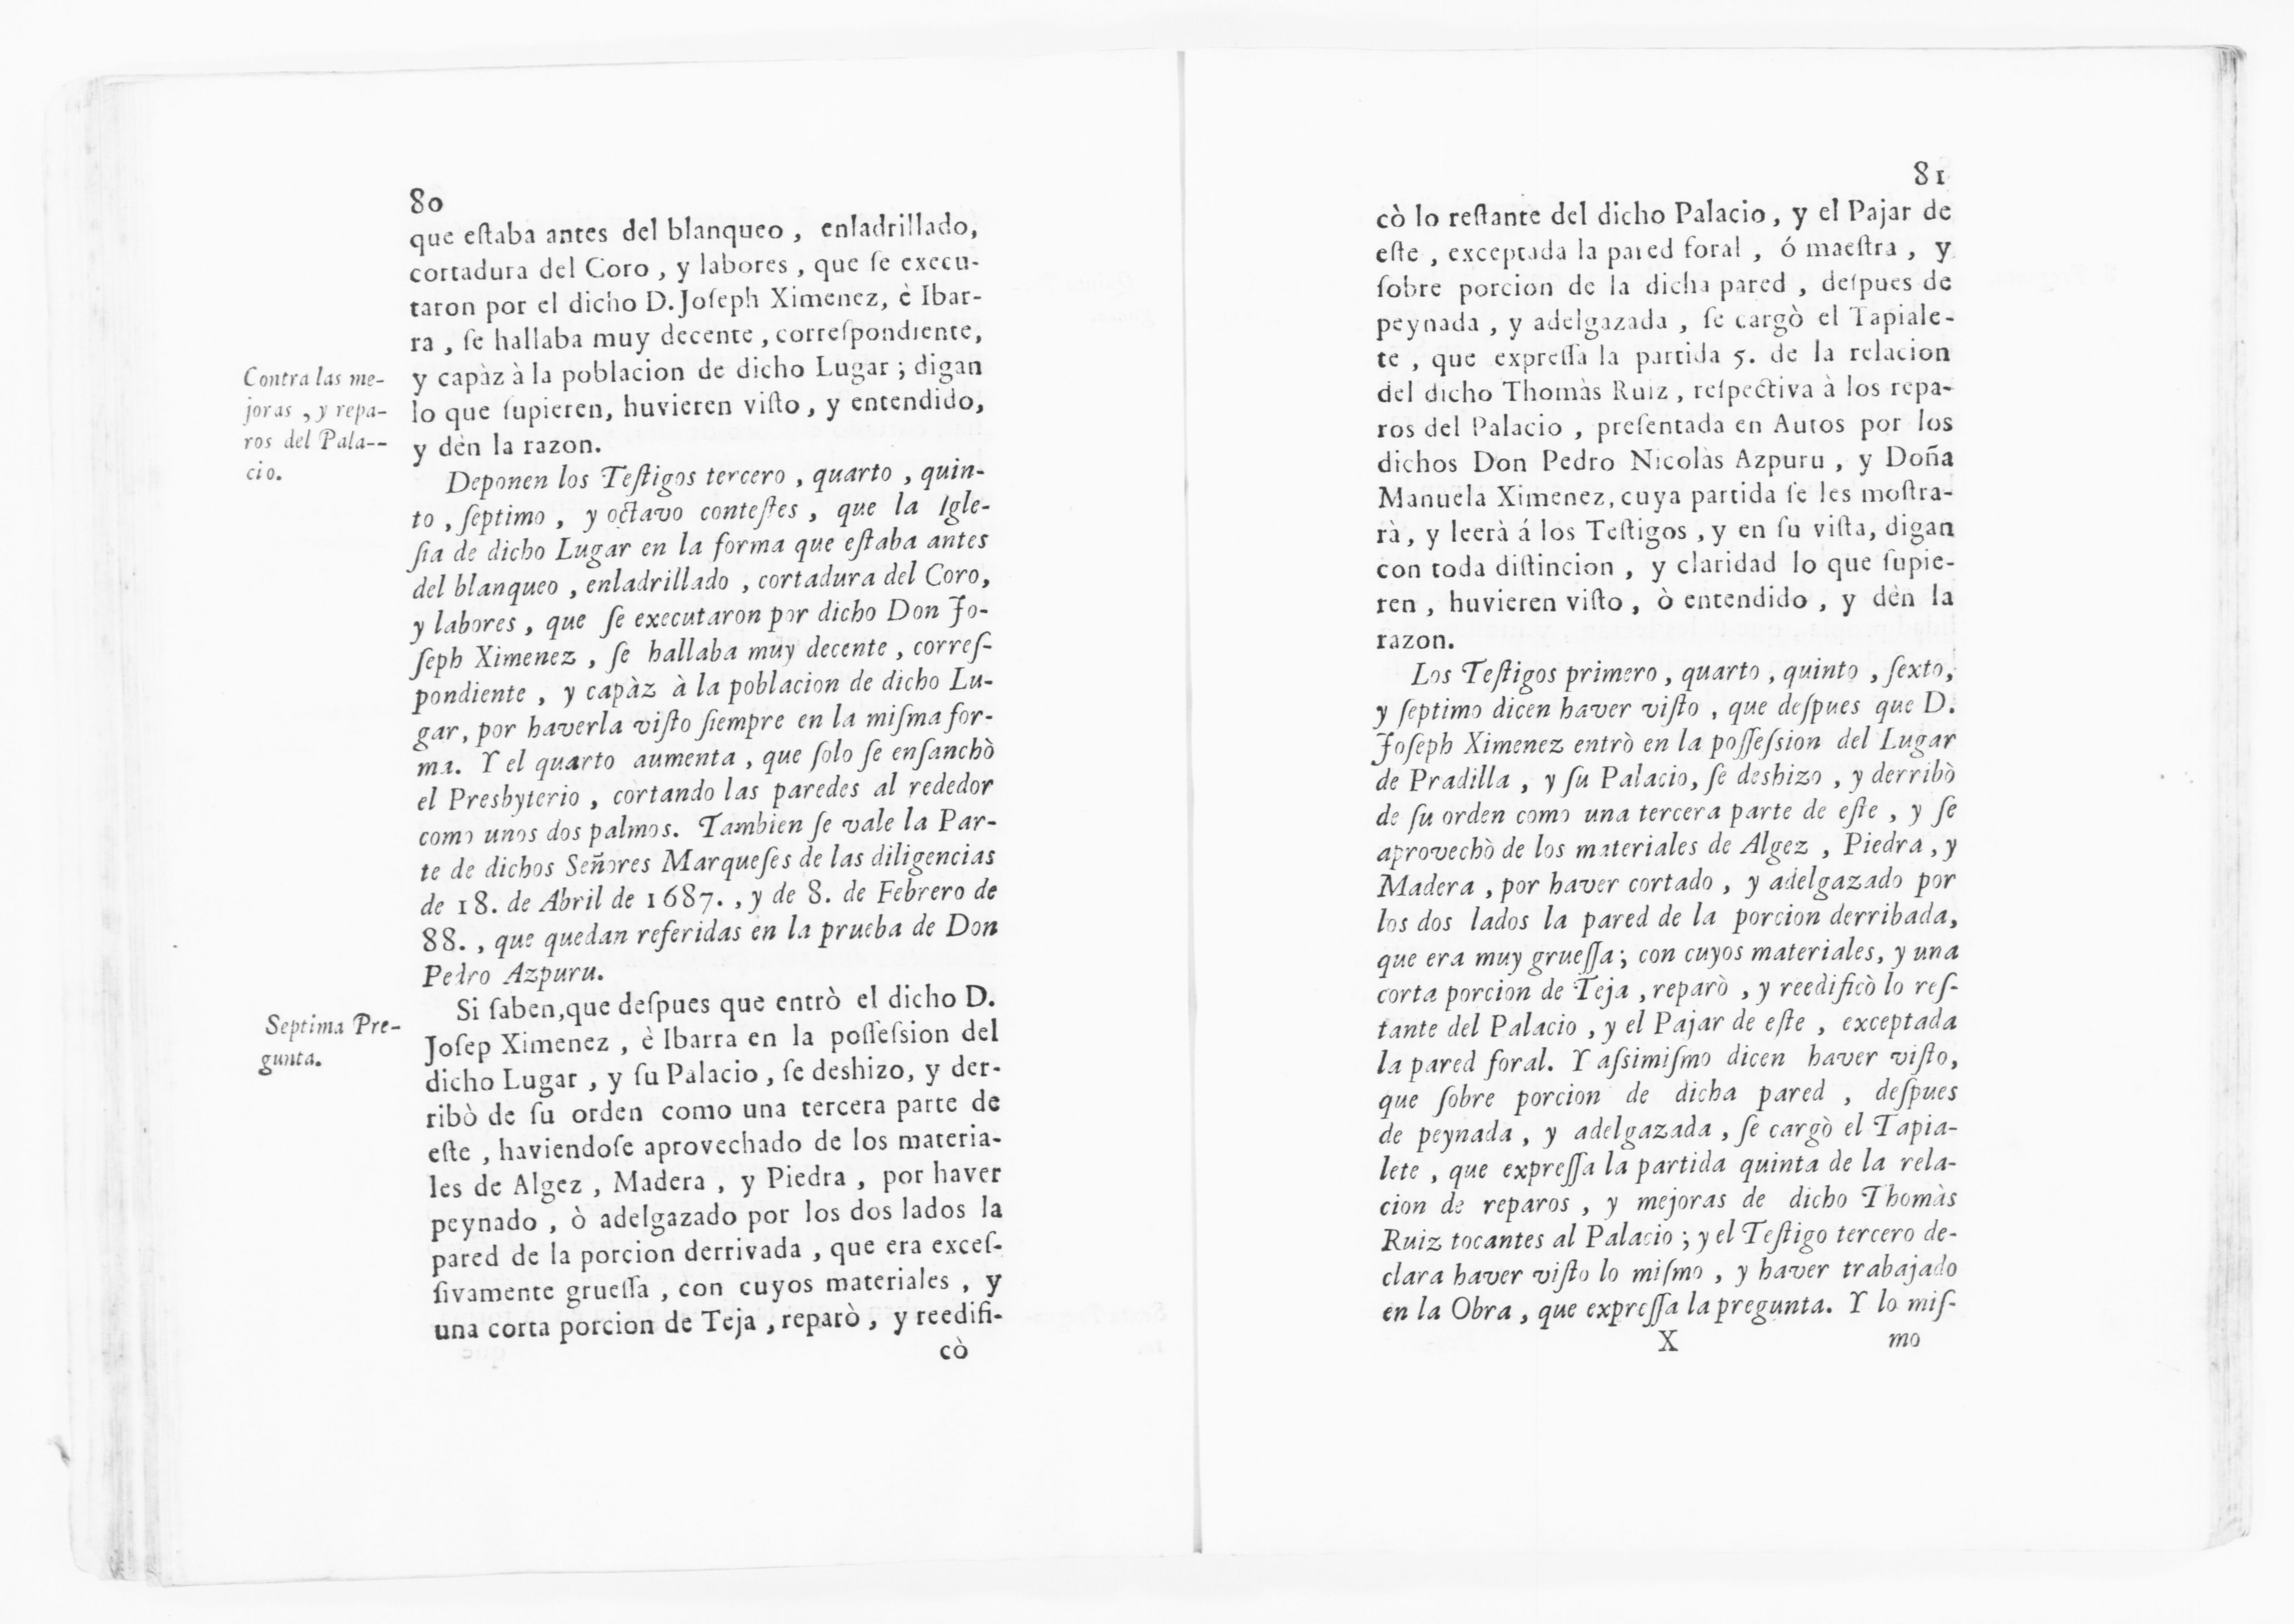 80
que eſtaba antes del blanqueo, enladrillado,
cortadura del Coro, y labores, que ſe execu-
taron por el dicho D. Joſeph Ximenez, è Ibar-
ra, ſe hallaba muy decente, correſpondiente,
y capàz à la poblacion de dicho Lugar; digan
lo que ſupieren, huvieren viſto, y entendido,
y dèn la razon.
Contra las me-
joras, y repa-
ros del Pala--
cio.
Deponen los Teſtigos tercero, quarto, quin-
to, ſeptimo, y octavo conteſtes, que la Igle-
ſia de dicho Lugar en la forma que eſtaba antes
del blanqueo, enladrillado, cortadura del Coro,
y labores, que ſe executaron por dicho Don Jo-
ſeph Ximenez, ſe hallaba muy decente, correſ-
pondiente, y capàz à la poblacion de dicho Lu-
gar, por haverla viſto ſiempre en la miſma for-
ma. Y el quarto aumenta, que ſolo ſe enſanchò
el Presbyterio, cortando las paredes al rededor
como unos dos palmos. Tambien ſe vale la Par-
te de dichos Señores Marqueſes de las diligencias
de 18. de Abril de 1687., y de 8. de Febrero de
88., que quedan referidas en la prueba de Don
Pedro Azpuru.
Septima Pre-
gunta.
Si ſaben, que deſpues que entrò el dicho D.
Joſep Ximenez, è Ibarra en la poſſeſsion del
dicho Lugar, y ſu Palacio, ſe deshizo, y der-
ribò de ſu orden como una tercera parte de
eſte, haviendoſe aprovechado de los materia-
les de Algez, Madera, y Piedra, por haver
peynado, ò adelgazado por los dos lados la
pared de la porcion derrivada, que era exceſ-
ſivamente grueſſa, con cuyos materiales, y
una corta porcion de Teja, reparò, y reedifi-
cò
81
cò lo reſtante del dicho Palacio, y el Pajar de
eſte, exceptada la pared foral, ó maeſtra, y
ſobre porcion de la dicha pared, deſpues de
peynada, y adelgazada, ſe cargò el Tapiale-
te, que expreſſa la partida 5. de la relacion
del dicho Thomàs Ruiz, reſpectiva à los repa-
ros del Palacio, preſentada en Autos por los
dichos Don Pedro Nicolàs Azpuru, y Doña
Manuela Ximenez, cuya partida ſe les moſtra-
rà, y leerà á los Teſtigos, y en ſu viſta, digan
con toda diſtincion, y claridad lo que ſupie-
ren, huvieren viſto, ò entendido, y dèn la
razon.
Los Teſtigos primero, quarto, quinto, ſexto,
y ſeptimo dicen haver viſto, que deſpues que D.
Joſeph Ximenez entrò en la poſſeſsion del Lugar
de Pradilla, y ſu Palacio, ſe deshizo, y derribò
de ſu orden como una tercera parte de eſte, y ſe
aprovechò de los materiales de Algez, Piedra, y
Madera, por haver cortado, y adelgazado por
los dos lados la pared de la porcion derribada,
que era muy grueſſa; con cuyos materiales, y una
corta porcion de Teja, reparò, y reedificò lo reſ-
tante del Palacio, y el Pajar de eſte, exceptada
la pared foral. Y aſsimiſmo dicen haver viſto,
que ſobre porcion de dicha pared, deſpues
de peynada, y adelgazada, ſe cargò el Tapia-
lete, que expreſſa la partida quinta de la rela-
cion de reparos, y mejoras de dicho Thomàs
Ruiz tocantes al Palacio; y el Teſtigo tercero de-
clara haver viſto lo miſmo, y haver trabajado
en la Obra, que expreſſa la pregunta. Y lo miſ-
X mo